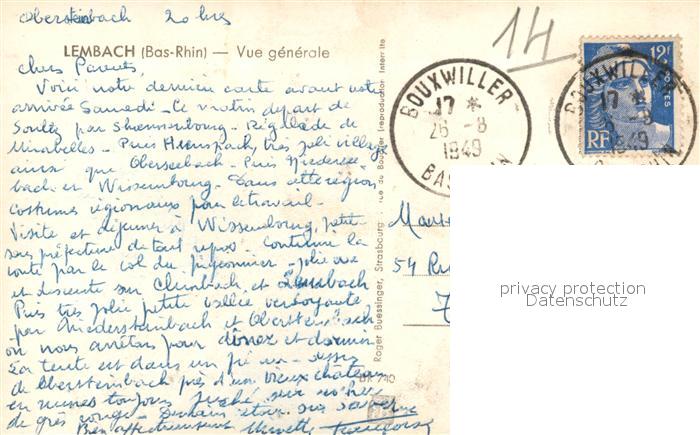 Obersteinbach 20 hres
LEMBACH (Bas-Rhin) — Vue générale
chers Parents,
Voici notre dernière carte avant notre
arrivée Samedi - Ce matin départ de
Soultz par Schoenenbourg - Régalade de
Mirabelles - Puis Hunspach, très joli village
ainsi que Oberseebach - Puis Niederseebach
et Wissembourg - Dans cette région
costumes régionaux pour le travail -
Visite et déjeuner à Wissembourg, petite
sous préfecture de tout repos - Continué la
route par le col du pigeonnier - jolie vue
et descente sur Climbach et Lembach
Puis très jolie petite vallée verdoyante
par Niedersteinbach et Obersteinbach
où nous arrêtons pour dîner et dormir
La tente est dans un pré au-dessus
de Obersteinbach près d'un vieux château
en ruines toujours perché sur rocher
de grès rouge - Demain étape sur Saverne
Bien affectueusement
Roger Buessinger, Strasbourg
rue du Bouclier reproduction interdite
BR 740
14
BOUXWILLER
17 *
26 - 8
1949
BAS-RHIN
12F
POSTES
RF
BOUXWILLER
17 *
- 8
1949
54 Ru
privacy protection
Datenschutz